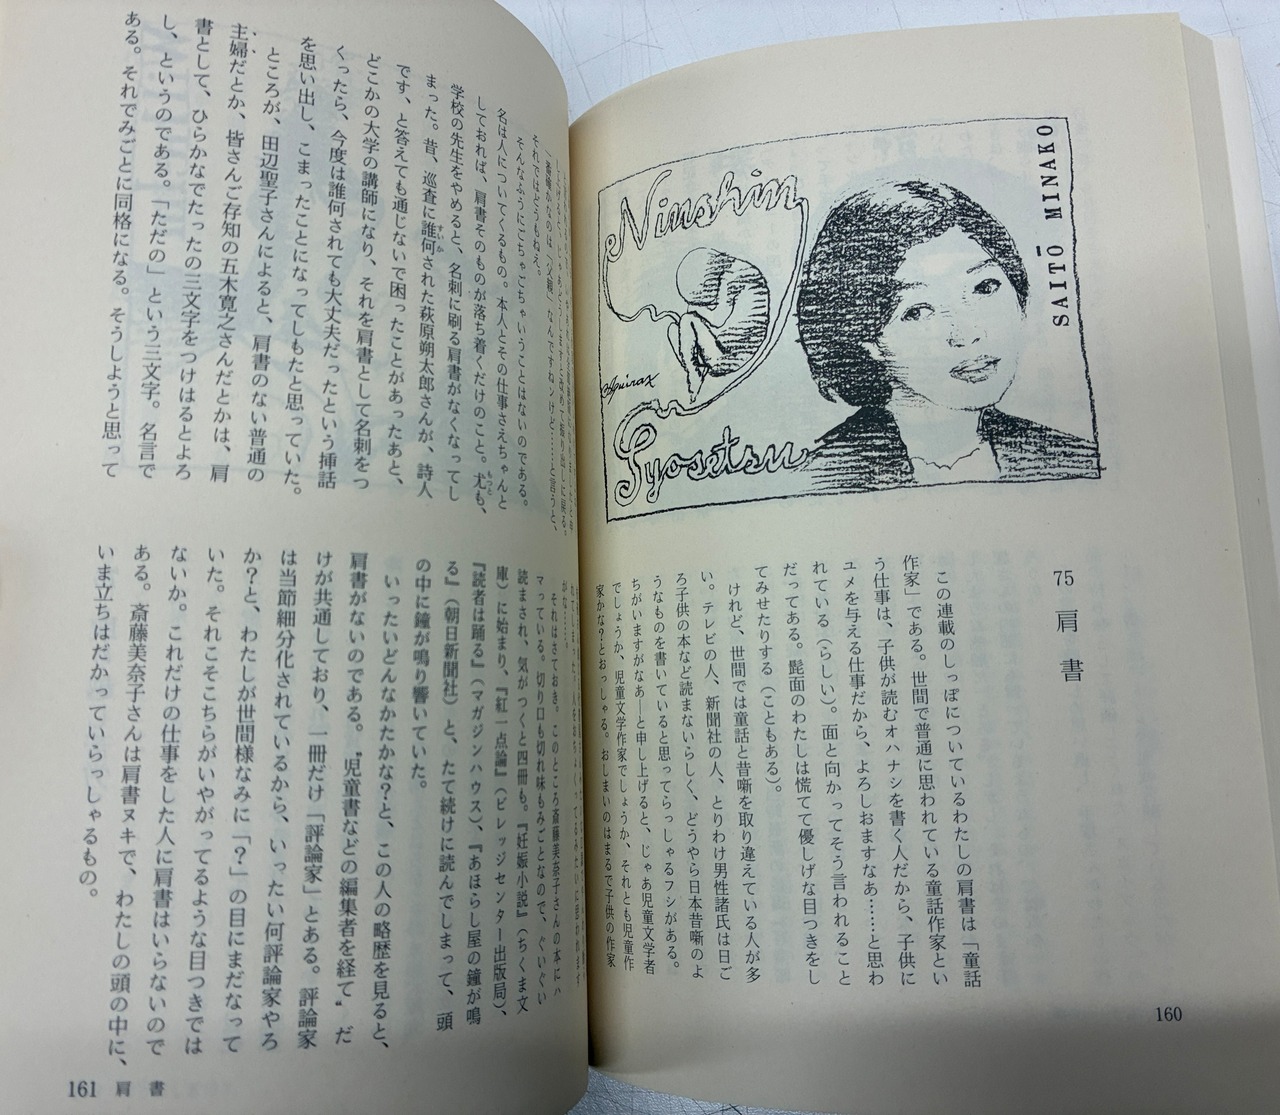 SAITŌ MINAKO
Ninshin
Syosetsu
75 肩書
この連載のしっぽについているわたしの肩書は「童話
作家」である。世間で普通に思われている童話作家とい
う仕事は、子供が読むオハナシを書く人だから、子供に
ユメを与える仕事だから、よろしおますなあ……と思わ
れている(らしい)。面と向かってそう言われること
だってある。髭面のわたしは慌てて優しげな目つきをし
てみせたりする(こともある)。
けれど、世間では童話と昔噺を取り違えている人が多
い。テレビの人、新聞社の人、とりわけ男性諸氏は日ご
ろ子供の本など読まないらしく、どうやら日本昔噺のよ
うなものを書いていると思ってらっしゃるフシがある。
ちがいますがなあ―と申し上げると、じゃあ児童文学者
でしょうか、児童文学作家でしょうか、それとも児童作
家かな?とおっしゃる。おしまいのはまるで子供の作家
160
「斎藤かなのは「父親」なんですねンけど……と言うと、
それではどうもねえ。
そんなふうにごちゃごちゃいうことはないのである。
名は人についてくるもの。本人とその仕事さえちゃんと
しておれば、肩書そのものが落ち着くだけのこと。尤も、
学校の先生をやめると、名刺に刷る肩書がなくなってし
まった。昔、巡査に誰何された萩原朔太郎さんが、詩人
です、と答えても通じないで困ったことがあったあと、
どこかの大学の講師になり、それを肩書として名刺をつ
くったら、今度は誰何されても大丈夫だったという挿話
を思い出し、こまったことになってしもたと思っていた。
ところが、田辺聖子さんによると、肩書のない普通の
主婦だとか、皆さんご存知の五木寛之さんだとかは、肩
書として、ひらかなでたったの三文字をつけはるとよろ
し、というのである。「ただの」という三文字。名言で
ある。それでみごとに同格になる。そうしようと思って
がな……。
それはさておき。このところ斎藤美奈子さんの本にハ
マっている。切り口も切れ味もみごとなので、ぐいぐい
読まされ、気がつくと四冊も。『妊娠小説』(ちくま文
庫)に始まり、『紅一点論』(ビレッジセンター出版局)、
『読者は踊る』(マガジンハウス)、『あほらし屋の鐘が鳴
る』(朝日新聞社)と、たて続けに読んでしまって、頭
の中に鐘が鳴り響いていた。
いったいどんなかたかな?と、この人の略歴を見ると、
肩書がないのである。〝児童書などの編集者を経て〟だ
けが共通しており、一冊だけ「評論家」とある。評論家
は当節細分化されているから、いったい何評論家やろ
か?と、わたしが世間様なみに「?」の目にまだなって
いた。それこそこちらがいやがってるような目つきでは
ないか。これだけの仕事をした人に肩書はいらないので
ある。斎藤美奈子さんは肩書ヌキで、わたしの頭の中に、
いま立ちはだかっていらっしゃるもの。
161 肩書